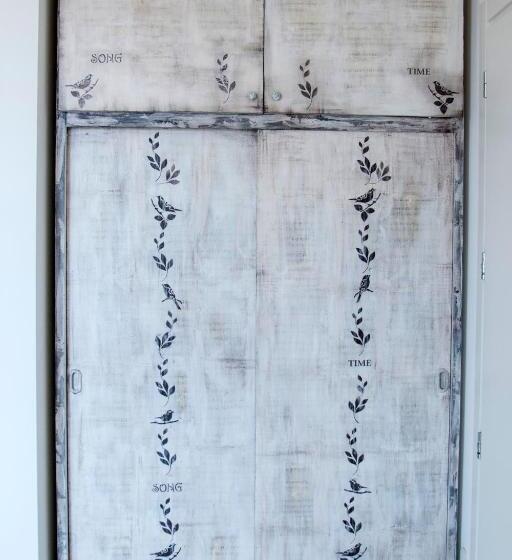 SONG
TIME
TIME
SONG